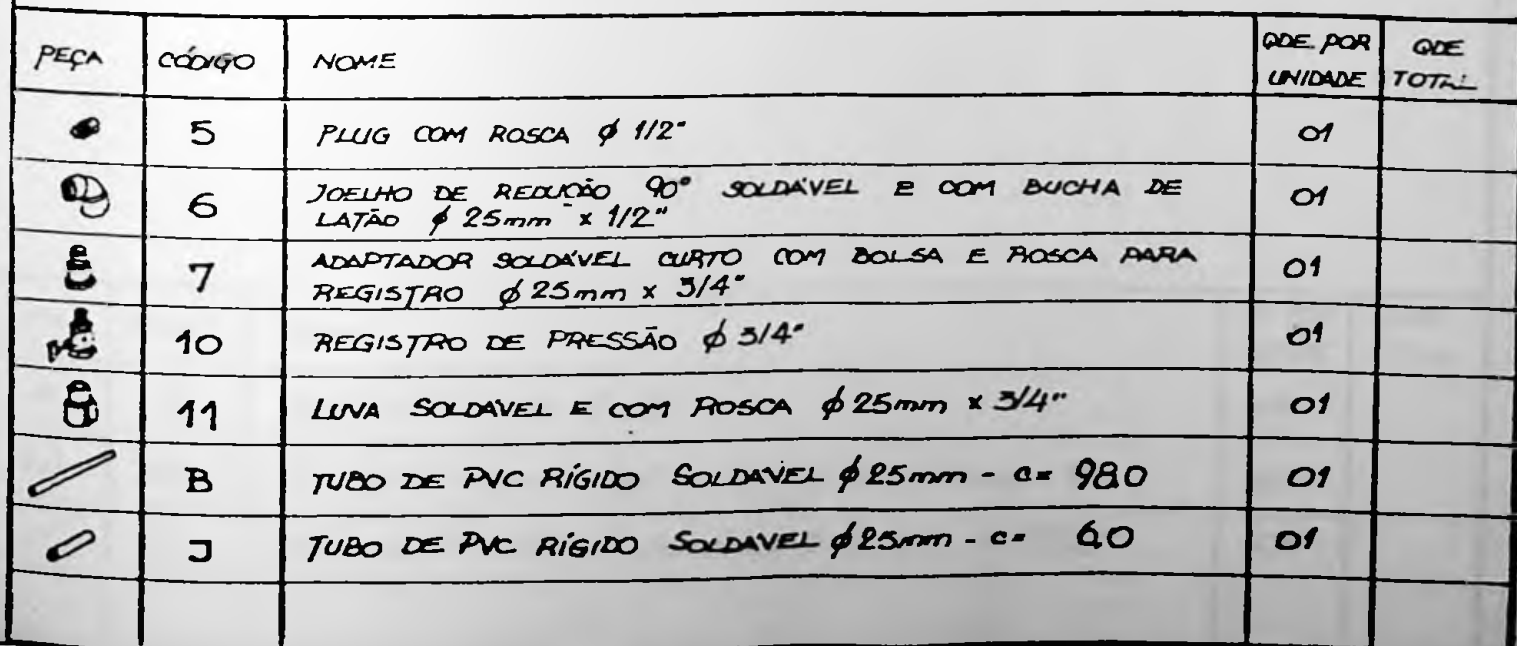 PEÇA CÓDIGO NOME QDE POR UNIDADE QDE TOTAL
5 PLUG COM ROSCA ϕ 1/2" 01
6 JOELHO DE REDUÇÃO 90° SOLDÁVEL E COM BUCHA DE
LATÃO ϕ 25mm x 1/2" 01
7 ADAPTADOR SOLDÁVEL CURTO COM BOLSA E ROSCA PARA
REGISTRO ϕ 25mm x 3/4" 01
10 REGISTRO DE PRESSÃO ϕ 3/4" 01
11 LUVA SOLDAVEL E COM ROSCA ϕ 25mm x 3/4" 01
B TUBO DE PVC RÍGIDO SOLDAVEL ϕ 25mm - c= 98.0 01
J TUBO DE PVC RÍGIDO SOLDAVEL ϕ 25mm - c= 6.0 01